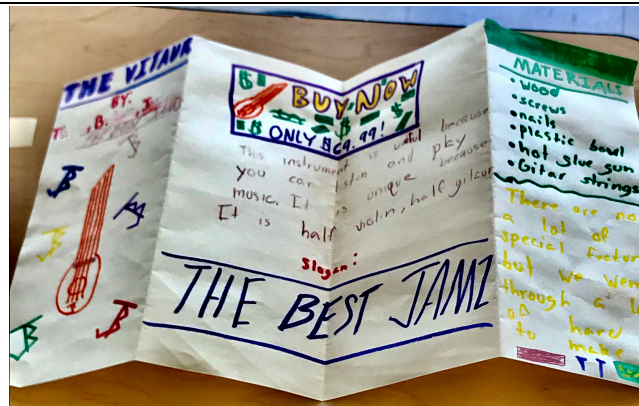 THE VITAUR
BY:
BUY NOW
ONLY $69.99!
This instrument is useful because
you can listen and play
music. It is unique because
It is half violin, half gitaur
Slogan:
THE BEST JAMZ
MATERIALS
• wood
• screws
• nails
• plastic bowl
• hot glue gun
• Gitar strings
There are no
a lot of
special featur
but we wen
through a l
of hard
to make